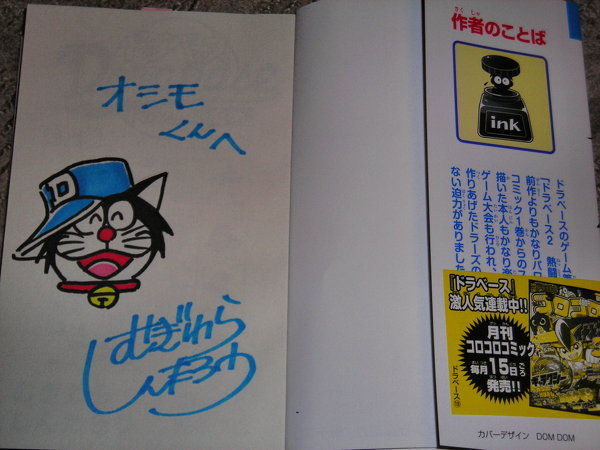 オシモ
くんへ
むぎわら
しんたろう
作者のことば
ink
ドラベースのゲーム第
『ドラベース2 熱闘
前作よりもかなりパワ
コミック1巻からのス
描いた本人もかなり楽
ゲーム大会も行われ、
作りあげたドラーズの
ない迫力がありました
『ドラベース』
激人気連載中!!
月刊
コロコロコミック
毎月15日ごろ
発売!!
ドラベース
カバーデザイン DOM DOM